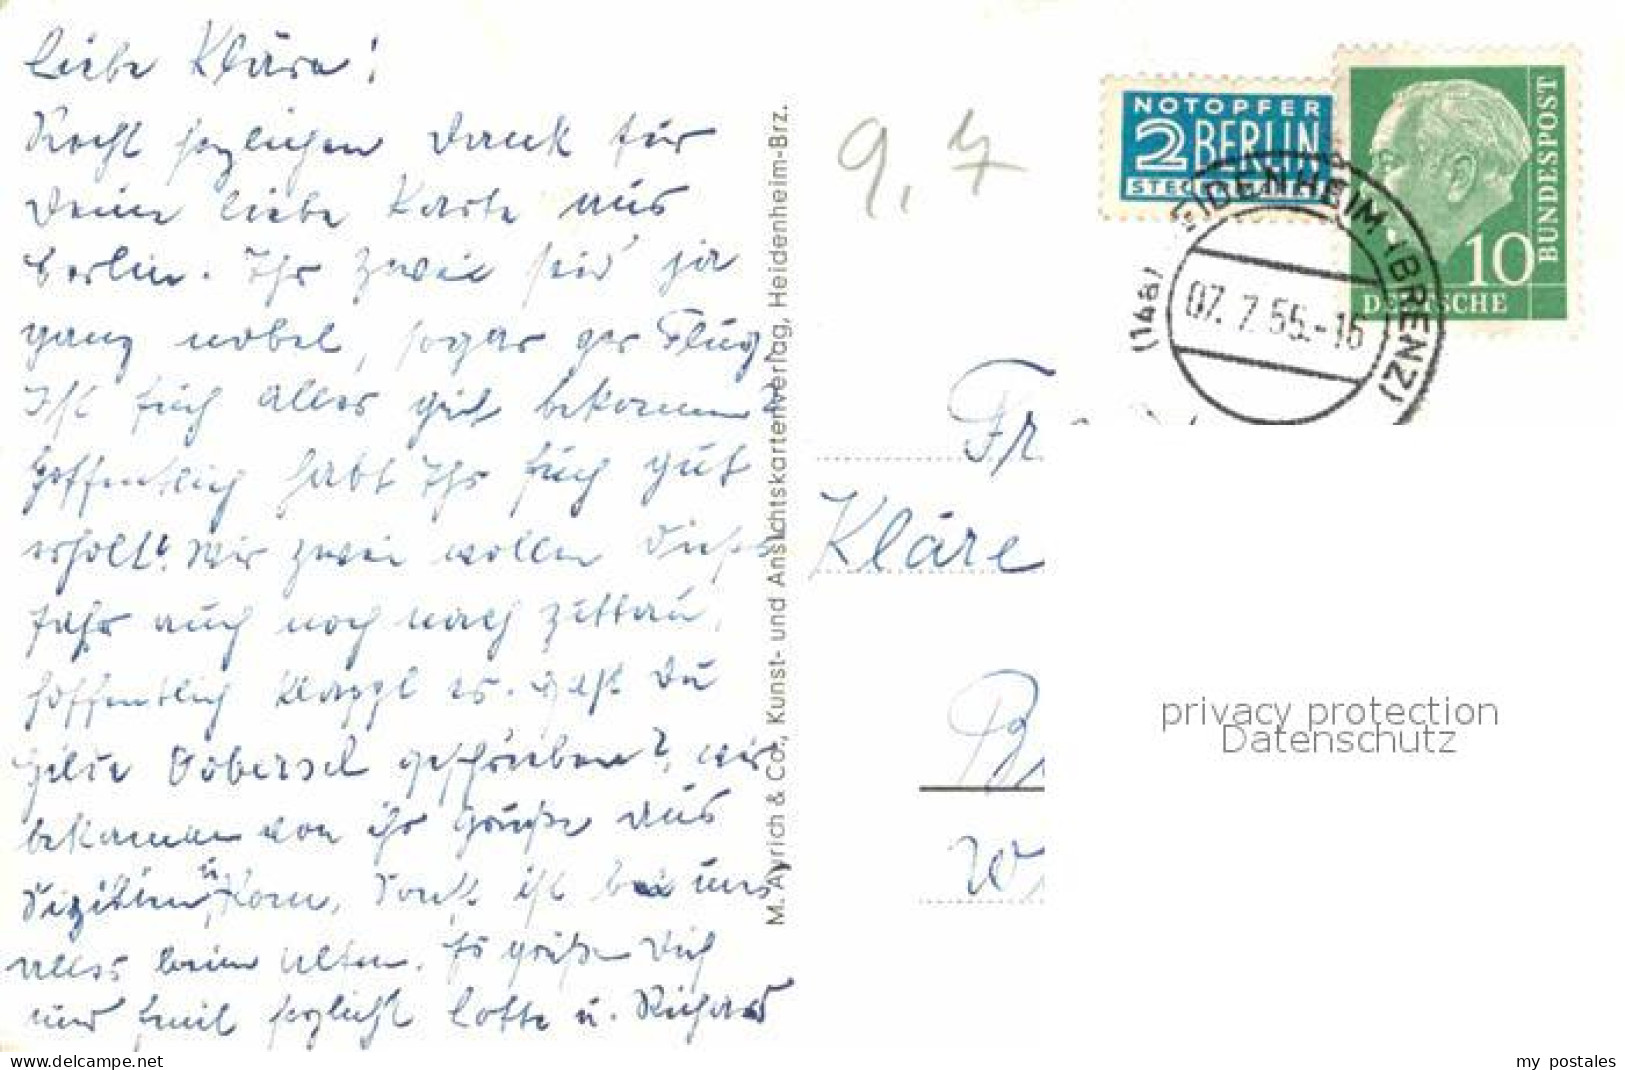 Liebe Kläre!
Recht herzlichen Dank für
Deine liebe Karte aus
Berlin. Ihr zwei seid ja
ganz nobel, sogar per Flug
Ist Euch alles gut bekommen?
Hoffentlich habt Ihr Euch gut
erholt! Wir zwei wollen dieses
Jahr auch noch nach Zittau,
hoffentlich klappt es. Hast Du
geschrieben? wir
bekamen von ihr Grüße aus
Sizilien u. Rom, Sonst ist bei uns
alles beim Alten. Es grüßen Dich
und Emil herzlichst Lotte u. Richard
M. Ayrich & Co., Kunst- und Ansichtskartenverlag, Heidenheim-Brz.
9,7
NOTOPFER
2 BERLIN
STEUERMARKE
DEUTSCHE
BUNDESPOST
10
(14a) HEIDENHEIM (BRENZ)
07.7.55.-16
Fr
Kläre
privacy protection
Datenschutz
www.delcampe.net
my_postales